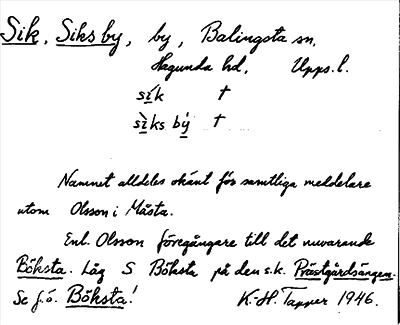 Sik, Siksby, by, Balingsta sn,
Hagunda hd, Upps. l.
sìk †
sìks bý †
Namnet alldeles okänt för samtliga meddelare
utom Olsson i Måsta.
Enl. Olsson föregångare till det nuvarande
Böksta. Låg S Böksta på den s.k. Prästgårdsängen.
Se f.ö. Böksta!
K.H. Tapper 1946.